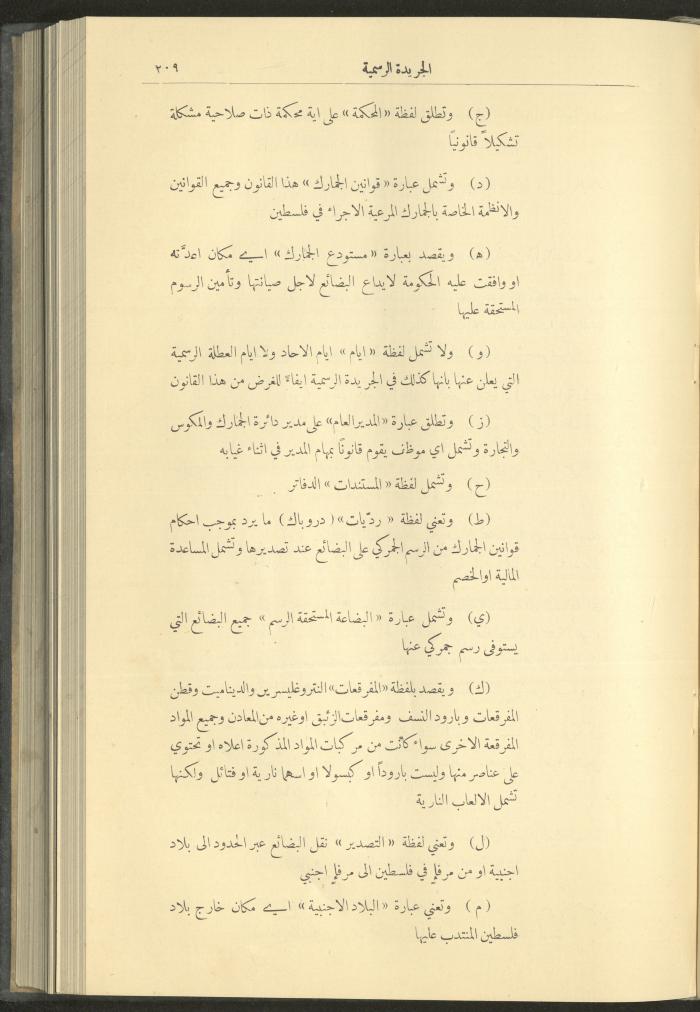 الجريدة الرسمية
٢٠٩
(ج) وتطلق لفظة «المحكمة» على اية محكمة ذات صلاحية مشكلة
تشكيلاً قانونيًا
(د) وتشمل عبارة «قوانين الجمارك» هذا القانون وجميع القوانين
والانظمة الخاصة بالجمارك المرعية الاجراء في فلسطين
(ه) ويقصد بعبارة «مستودع الجمارك» اي مكان اعدَّته
او وافقت عليه الحكومة لايداع البضائع لاجل صيانتها وتأمين الرسوم
المستحقة عليها
(و) ولا تشمل لفظة «ايام» ايام الاحاد ولا ايام العطلة الرسمية
التي يعلن عنها بانها كذلك في الجريدة الرسمية ايفاءً للغرض من هذا القانون
(ز) وتطلق عبارة «المدير العام» على مدير دائرة الجمارك والمكوس
والتجارة وتشمل اي موظف يقوم قانونًا بمهام المدير في اثناء غيابه
(ح) وتشمل لفظة «المستندات» الدفاتر
(ط) وتعني لفظة «رديّات» (دروباك) ما يرد بموجب احكام
قوانين الجمارك من الرسم الجمركي على البضائع عند تصديرها وتشمل المساعدة
المالية او الخصم
(ي) وتشمل عبارة «البضاعة المستحقة الرسم» جميع البضائع التي
يستوفى رسم جمركي عنها
(ك) ويقصد بلفظة «المفرقعات» النتروغليسرين والديناميت وقطن
المفرقعات وبارود النسف ومفرقعات الزئبق او غيره من المعادن وجميع المواد
المفرقعة الاخرى سواء كانت من مركبات المواد المذكورة اعلاه او تحتوي
على عناصر منها وليست باروداً او كبسولا او اسهما نارية او فتائل ولكنها
تشمل الالعاب النارية
(ل) وتعني لفظة «التصدير» نقل البضائع عبر الحدود الى بلاد
اجنبية او من مرفإٍ في فلسطين الى مرفإٍ اجنبي
(م) وتعني عبارة «البلاد الاجنبية» اي مكان خارج بلاد
فلسطين المنتدب عليها